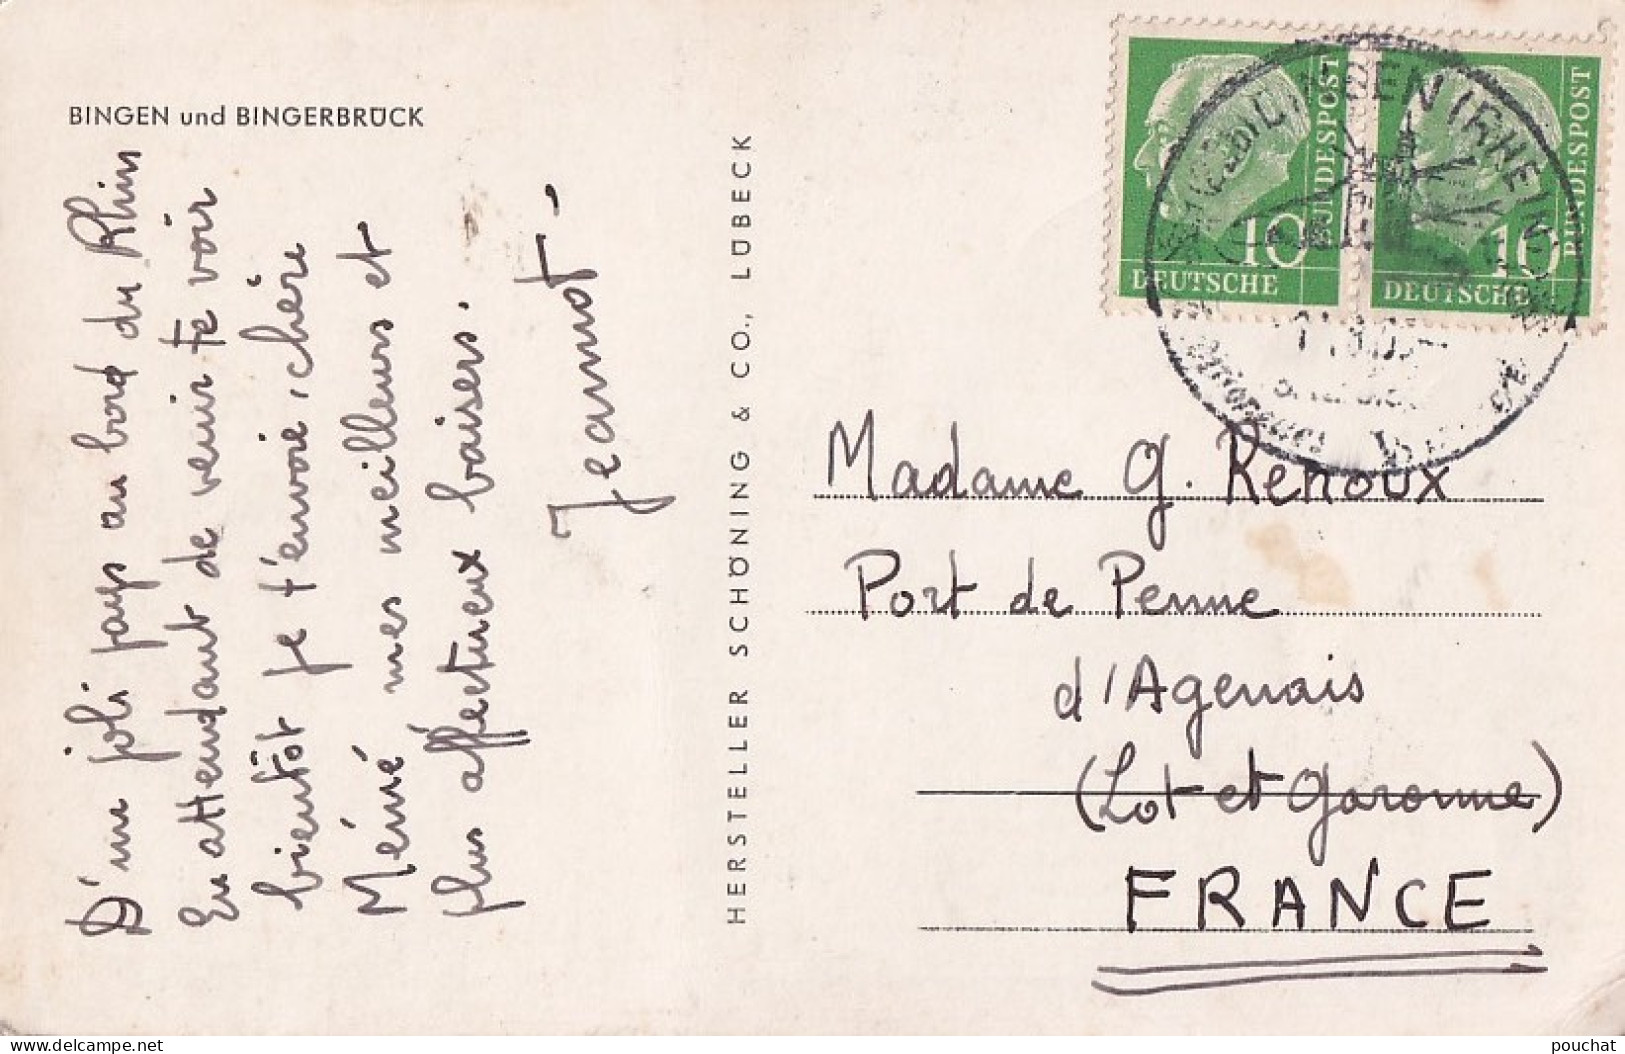 BINGEN und BINGERBRÜCK
D'un joli pays au bord du Rhin
En attendant de venir te voir
bientôt je t'envoie, chère
Mémé mes meilleurs et
plus affectueux baisers.
Jeannot-
HERSTELLER SCHÖNING & CO., LÜBECK
10 BUNDESPOST
DEUTSCHE
10 BUNDESPOST
DEUTSCHE
BINGEN (RHEIN)
Madame G. Renoux
Port de Penne
d'Agenais
(Lot et Garonne)
FRANCE
www.delcampe.net
pouchat